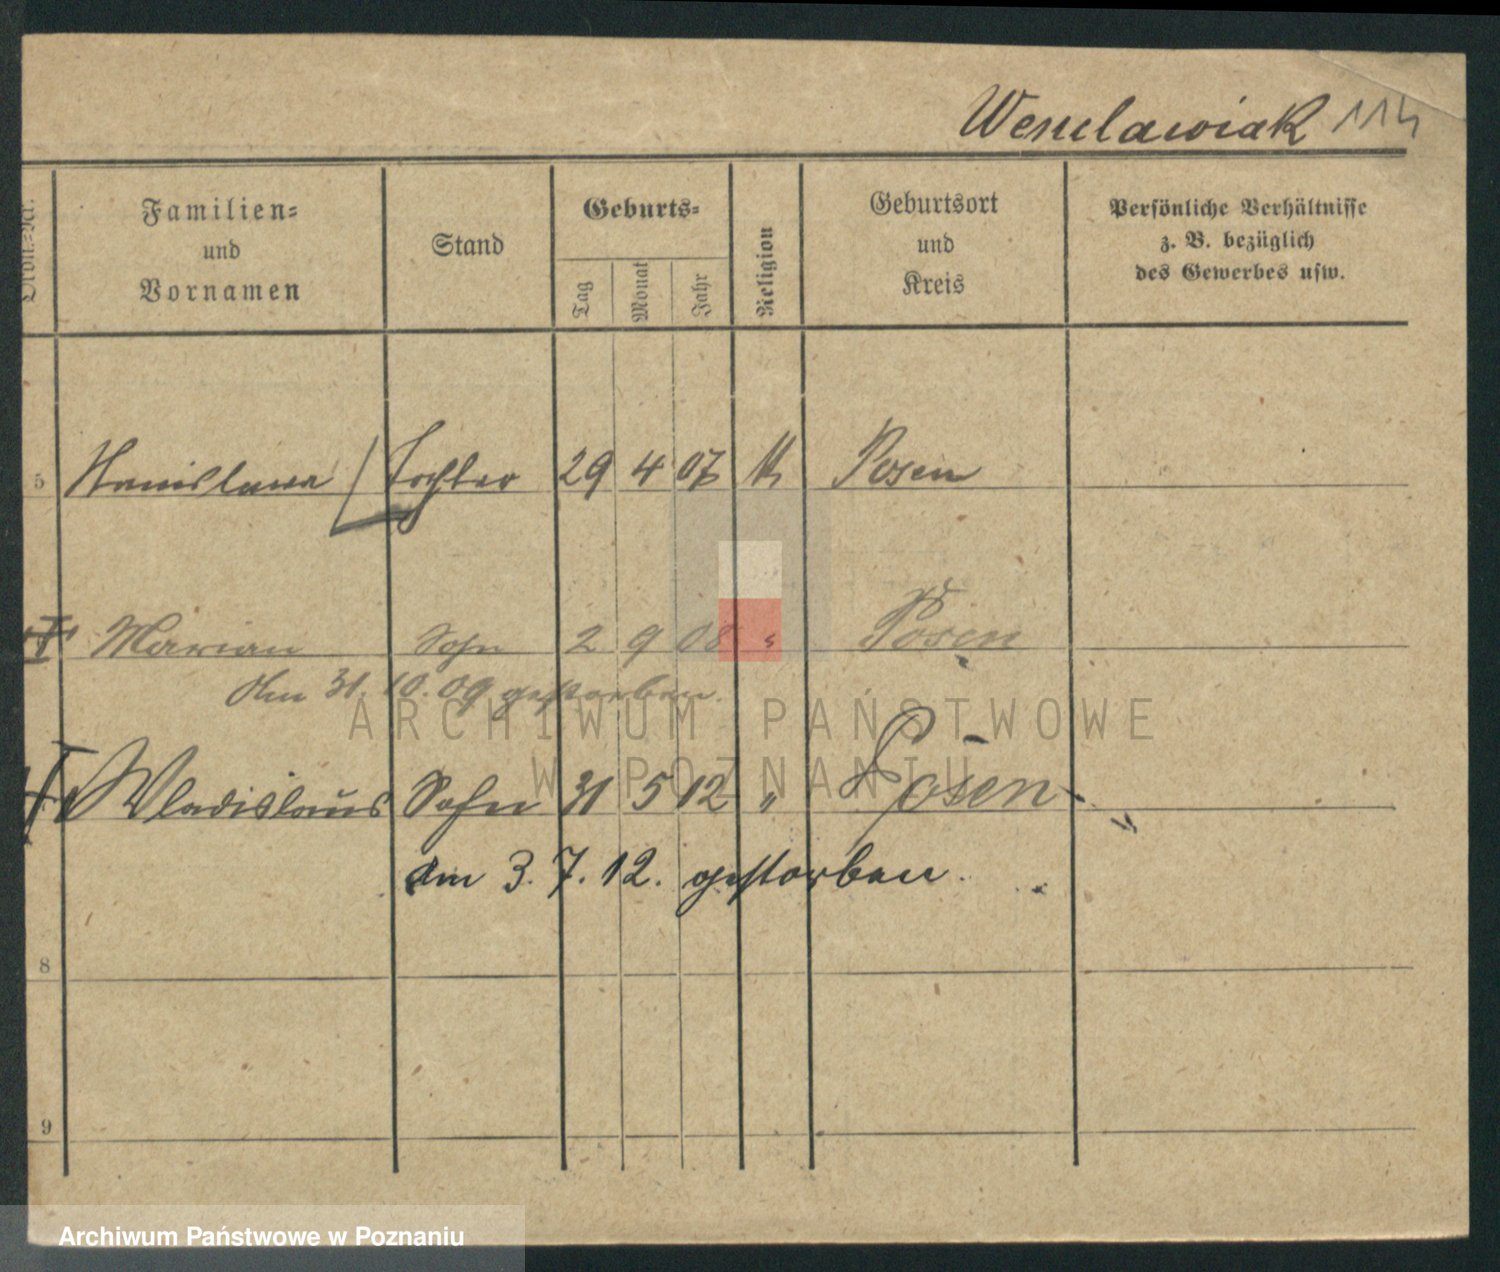 Wenclawiak 114
Ordn.-Nr.
Familien-
und
Vornamen
Stand
Geburts-
Tag
Monat
Jahr
Religion
Geburtsort
und
Kreis
Persönliche Verhältnisse
z. B. bezüglich
des Gewerbes usw.
5 Stanislawa Tochter 29 4 07 k Posen
Marian Sohn 2 9 08 " Posen
Am 31.10.09 gestorben.
ARCHIWUM PAŃSTWOWE
W POZNANIU
Wladislaus Sohn 31 5 12 " Posen
am 3.7.12. gestorben.
8
9
Archiwum Państwowe w Poznaniu